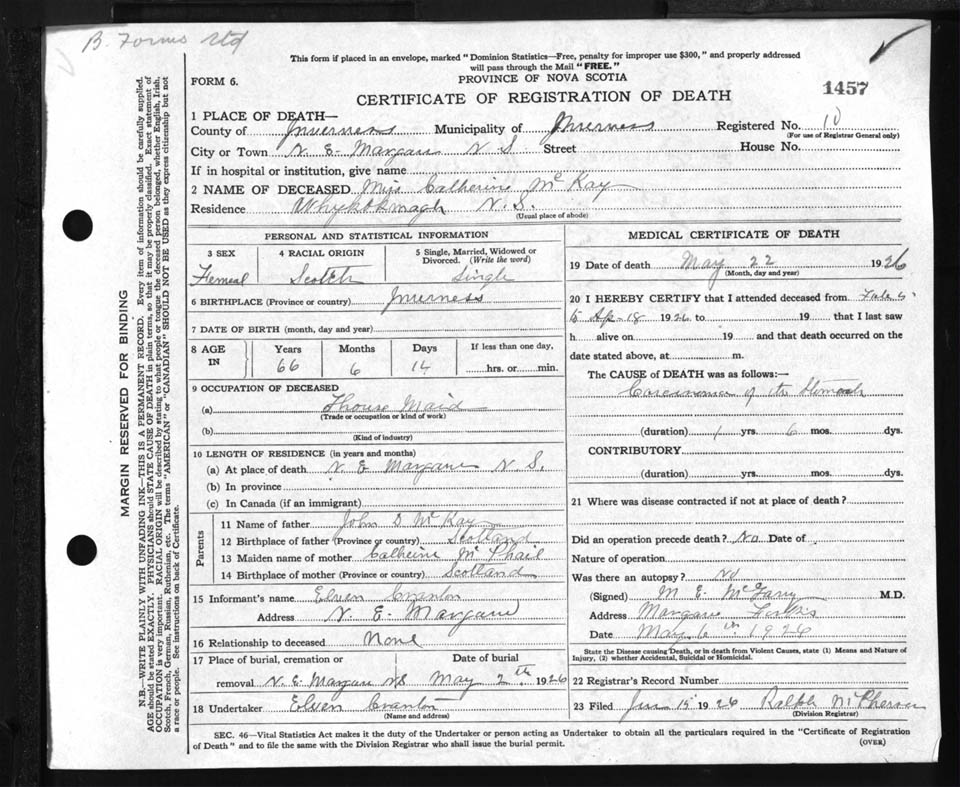 B. Forms std
This form if placed in an envelope, marked "Dominion Statistics—Free, penalty for improper use $300," and properly addressed
will pass through the Mail "FREE."
FORM 6.
PROVINCE OF NOVA SCOTIA
1457
CERTIFICATE OF REGISTRATION OF DEATH
1 PLACE OF DEATH—
County of Inverness Municipality of Inverness Registered No. 10
(For use of Registrar General only)
City or Town N. E. Margaree N S Street House No.
If in hospital or institution, give name
2 NAME OF DECEASED Miss Catherine McKay
Residence Whykokomagh N.S.
(Usual place of abode)
PERSONAL AND STATISTICAL INFORMATION
3 SEX 4 RACIAL ORIGIN 5 Single, Married, Widowed or
Divorced. (Write the word)
Femeal Scotch Single
6 BIRTHPLACE (Province or country) Inverness
7 DATE OF BIRTH (month, day and year)
8 AGE IN Years Months Days If less than one day,
66 6 14 hrs. or min.
9 OCCUPATION OF DECEASED
(a) House Maid
(Trade or occupation or kind of work)
(b)
(Kind of industry)
10 LENGTH OF RESIDENCE (in years and months)
(a) At place of death N E Margaree N S.
(b) In province
(c) In Canada (if an immigrant)
Parents
11 Name of father John D McKay
12 Birthplace of father (Province or country) Scotland
13 Maiden name of mother Catherine McPhail
14 Birthplace of mother (Province or country) Scotland
15 Informant's name Elven Cranton
Address N. E. Margaree
16 Relationship to deceased None
17 Place of burial, cremation or Date of burial
removal N. E. Margaree NS May 2th 1926
18 Undertaker Elven Cranton
(Name and address)
MEDICAL CERTIFICATE OF DEATH
19 Date of death May 22 1926
(Month, day and year)
20 I HEREBY CERTIFY that I attended deceased from
Ap-18 1926 to 19 that I last saw
h alive on 19 and that death occurred on the
date stated above, at m.
The CAUSE of DEATH was as follows:—
Carcinoma of the Stomach
(duration) 1 yrs. 6 mos. dys.
CONTRIBUTORY
(duration) yrs. mos. dys.
21 Where was disease contracted if not at place of death?
Did an operation precede death? No Date of
Nature of operation
Was there an autopsy? No
(Signed) M. E. McGarry M.D.
Address Margaree Forks
Date May 6th 1926
State the Disease causing Death, or in death from Violent Causes, state (1) Means and Nature of
Injury, (2) whether Accidental, Suicidal or Homicidal.
22 Registrar's Record Number
23 Filed Jun 15 1926 Ralph McPherson
(Division Registrar)
SEC. 46—Vital Statistics Act makes it the duty of the Undertaker or person acting as Undertaker to obtain all the particulars required in the "Certificate of Registration
of Death" and to file the same with the Division Registrar who shall issue the burial permit.
(OVER)
MARGIN RESERVED FOR BINDING
N.B.—WRITE PLAINLY WITH UNFADING INK—THIS IS A PERMANENT RECORD. Every item of information should be carefully supplied.
AGE should be stated EXACTLY. PHYSICIANS should STATE CAUSE OF DEATH in plain terms, so that it may be properly classified. Exact statement of
OCCUPATION is very important. RACIAL ORIGIN will be described by stating to what people or tongue the deceased person belonged, whether English, Irish,
Scotch, French, German, Russian, Ruthenian, etc. The terms "AMERICAN" or "CANADIAN" SHOULD NOT BE USED as they express citizenship but not
a race or people. See instructions on back of Certificate.